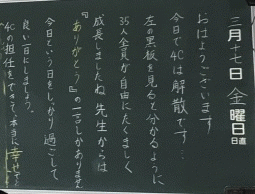 三月十七日 金曜日
日直
おはようございます
今日で4Cは解散です…
左の黒板を見ると分かるように
35人全員が自由にたくましく
成長しましたね 先生からは
『ありがとう』の一言しかありません
今日という日をしっかり過ごして
良い一日にしましょう。
4C担任をできて、本当に幸せ